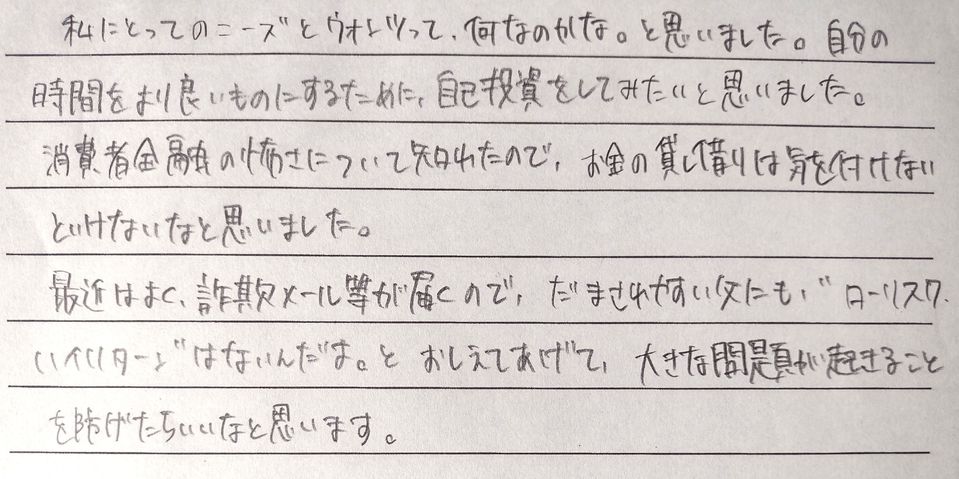 私にとってのニーズとウォンツって、何なのかな。と思いました。自分の
時間をより良いものにするために、自己投資をしてみたいと思いました。
消費者金融の怖さについて知れたので、お金の貸し借りは気を付けない
といけないなと思いました。
最近はよく、詐欺メール等が届くので、だまされやすい父にも、"ローリスク、
ハイリターン"はないんだよ。と おしえてあげて、大きな問題が起きること
を防げたらいいなと思います。